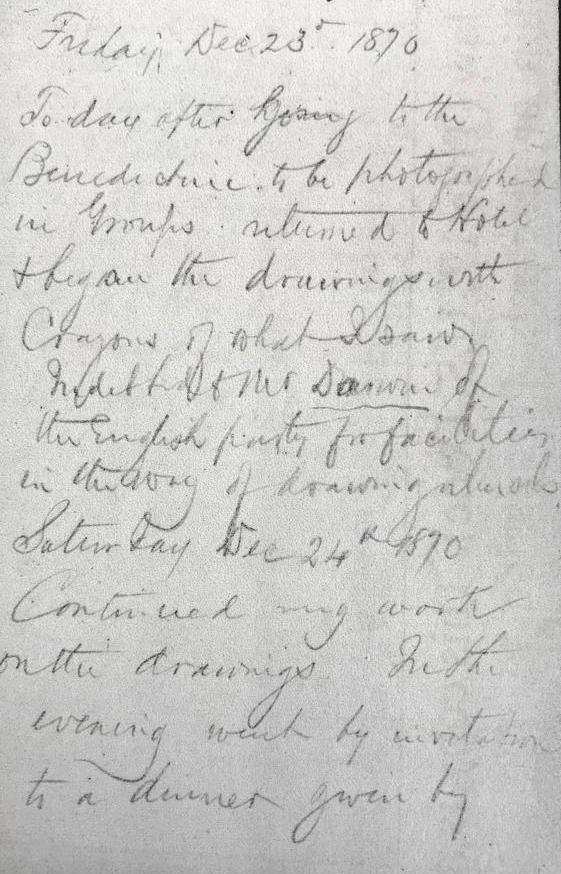 Friday, Dec 23d. 1870
To-day after Going to the
Benedictine. to be photographed
in Groups. returned to Hotel
& began the drawings with
Crayons of what I saw
Indebted to Mr Darwin of
the English party for facilities
in the way of drawing utensils
Saturday Dec 24th 1870
Continued my work
on the drawings In the
evening went by invitation
to a dinner given by